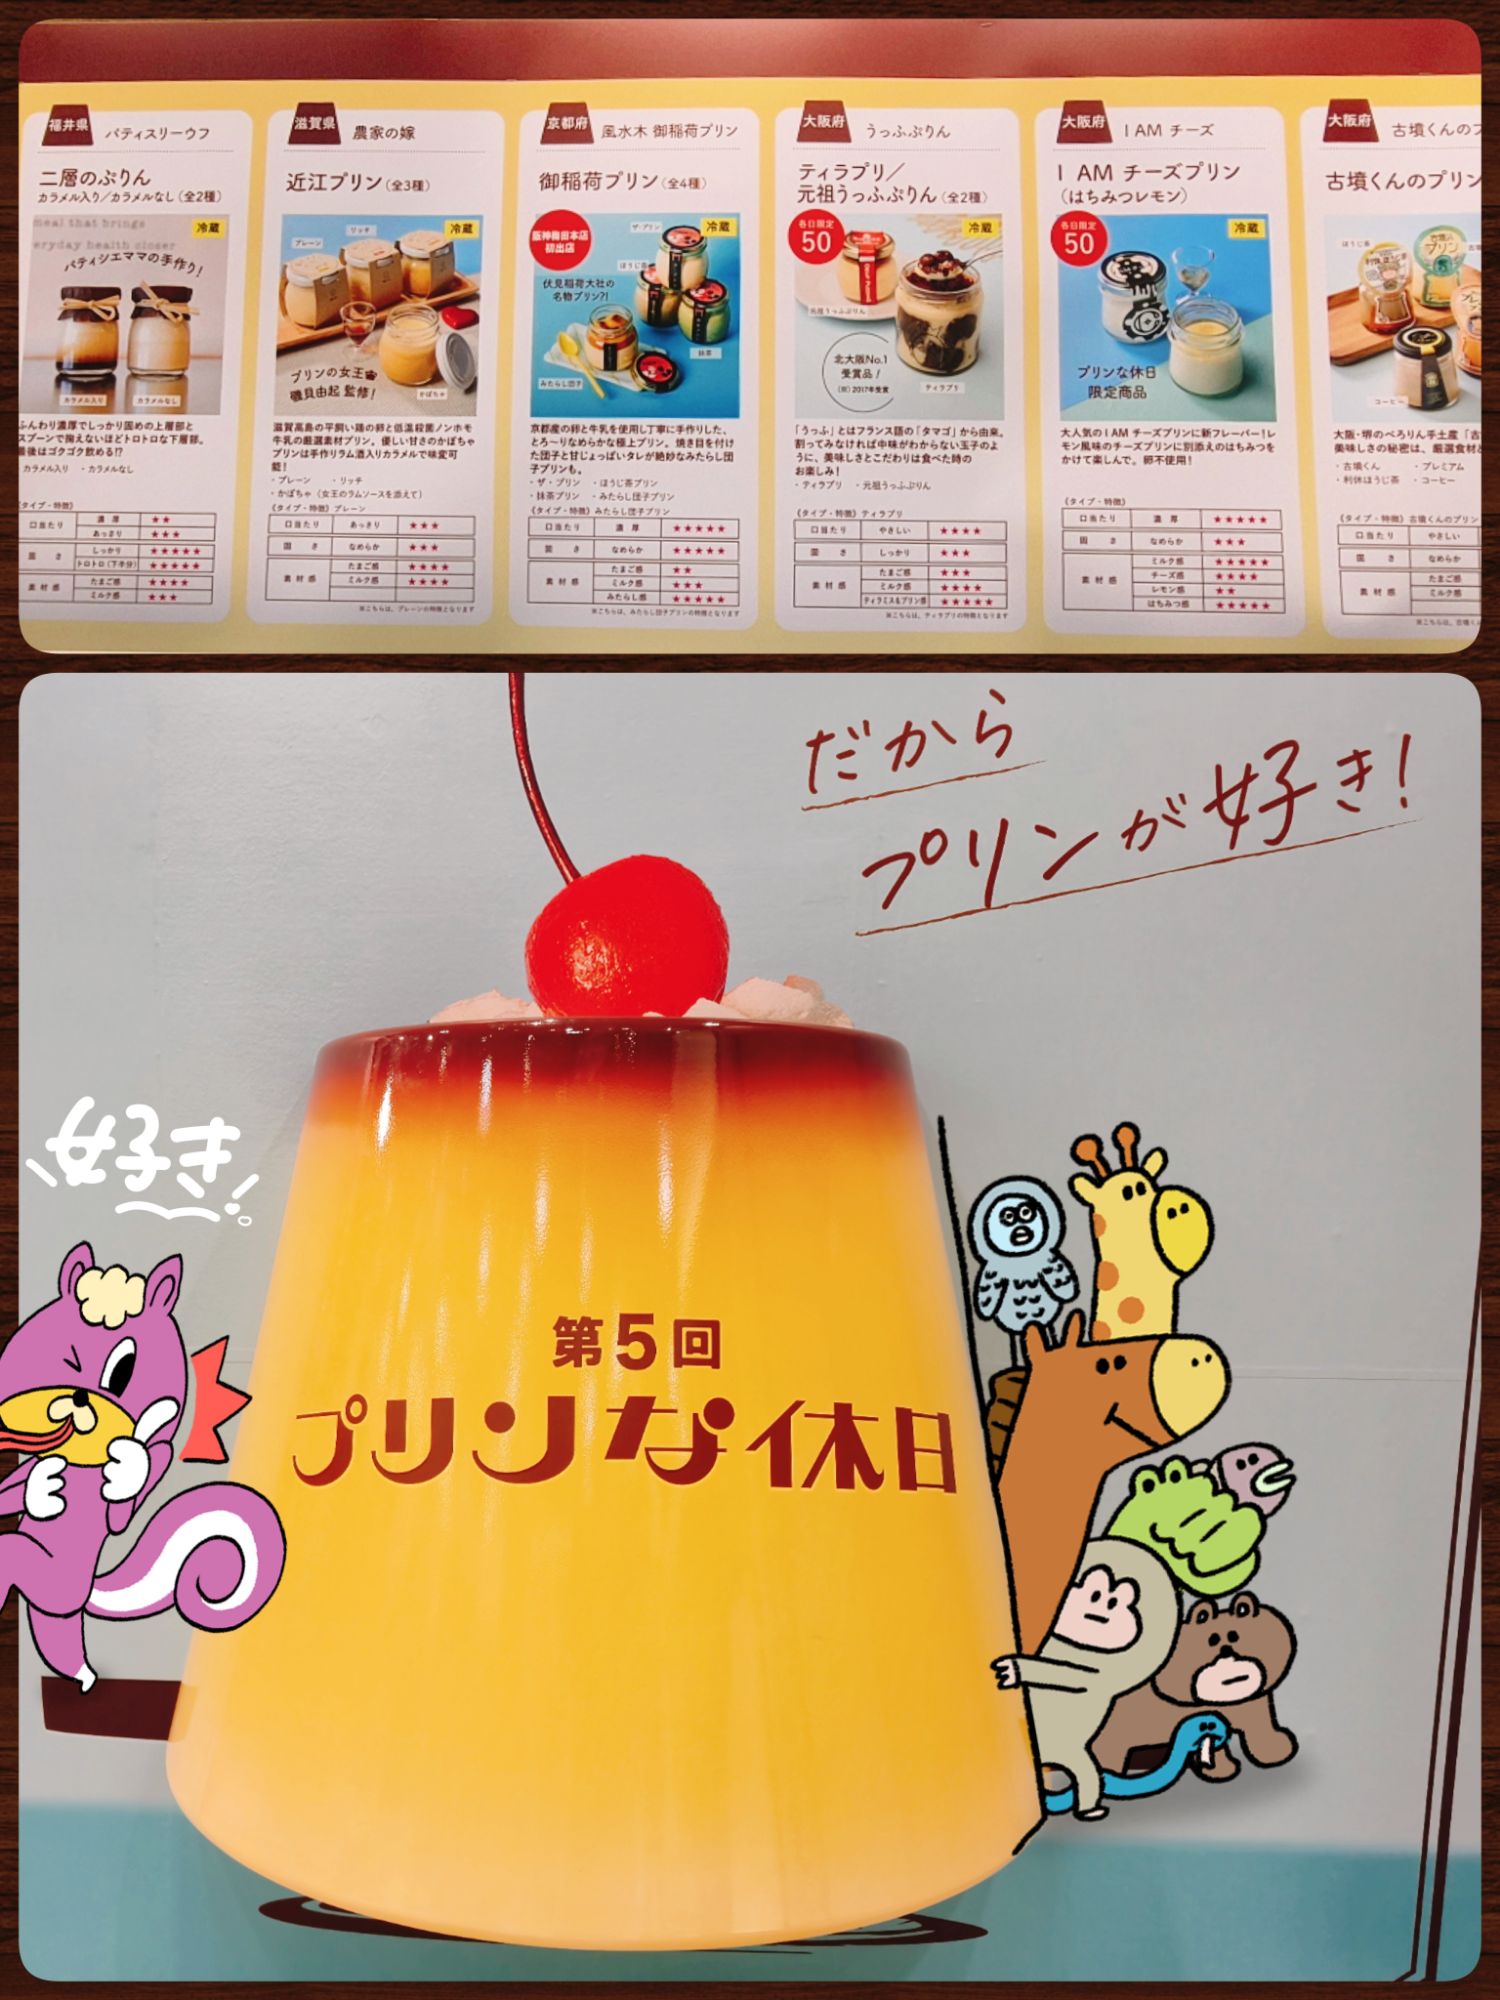 福井県 パティスリーウフ
二層のぷりん
カラメル入り/カラメルなし(全2種)
meal that brings
eryday health closer
冷蔵
パティシエママの手作り!
カラメル入り
カラメルなし
ふんわり濃厚でしっかり固めの上層部と
スプーンで掬えないほどトロトロな下層部。
最後はゴクゴク飲める!?
カラメル入り ・カラメルなし
(タイプ・特徴)
口当たり 濃厚 ★★
あっさり ★★★
固さ しっかり ★★★★★
トロトロ(下半分) ★★★★★
素材感 たまご感 ★★★★
ミルク感 ★★★
滋賀県 農家の嫁
近江プリン(全3種)
冷蔵
プレーン
リッチ
プリンの女王
磯貝由起 監修!
かぼちゃ
滋賀高島の平飼い鶏の卵と低温殺菌ノンホモ
牛乳の厳選素材プリン。優しい甘さのかぼちゃ
プリンは手作りラム酒入りカラメルで味変可
能!
・プレーン ・リッチ
・かぼちゃ(女王のラムソースを添えて)
(タイプ・特徴)プレーン
口当たり あっさり ★★★
固さ なめらか ★★★
素材感 たまご感 ★★★★
ミルク感 ★★★★
※こちらは、プレーンの特徴となります
京都府 風水木 御稲荷プリン
御稲荷プリン(全4種)
阪神梅田本店
初出店
冷蔵
ザ・プリン
ほうじ茶
伏見稲荷大社の
名物プリン?!
抹茶
みたらし団子
京都産の卵と牛乳を使用し丁寧に手作りした、
とろ〜りなめらかな極上プリン。焼き目を付け
た団子と甘じょっぱいタレが絶妙なみたらし団
子プリンも。
・ザ・プリン ・ほうじ茶プリン
・抹茶プリン ・みたらし団子プリン
(タイプ・特徴)みたらし団子プリン
口当たり 濃厚 ★★★★★
固さ なめらか ★★★★★
素材感 たまご感 ★★
ミルク感 ★★★
みたらし感 ★★★★★
※こちらは、みたらし団子プリンの特徴となります
大阪府 うっふぷりん
ティラプリ/
元祖うっふぷりん(全2種)
各日限定
50
冷蔵
元祖うっふぷりん
北大阪No.1
受賞品!
(※)2017年受賞
ティラプリ
「うっふ」とはフランス語の「タマゴ」から由来。
割ってみなければ中味がわからない玉子のよ
うに、美味しさとこだわりは食べた時の
お楽しみ!
・ティラプリ ・元祖うっふぷりん
(タイプ・特徴)ティラプリ
口当たり やさしい ★★★★
固さ しっかり ★★★
素材感 たまご感 ★★★
ミルク感 ★★★★
ティラミス&プリン感 ★★★★★
※こちらは、ティラプリの特徴となります
大阪府 I AM チーズ
I AM チーズプリン
(はちみつレモン)
各日限定
50
冷蔵
プリンな休日
限定商品
大人気のI AM チーズプリンに新フレーバー!レ
モン風味のチーズプリンに別添えのはちみつを
かけて楽しんで。卵不使用!
(タイプ・特徴)
口当たり 濃厚 ★★★★★
固さ なめらか ★★★
素材感 ミルク感 ★★★★★
チーズ感 ★★★★
レモン感 ★★
はちみつ感 ★★★★★
大阪府 古墳くんのプ
古墳くんのプリン
ほうじ茶
コーヒー
大阪・堺のぺろりん手土産「古
美味しさの秘密は、厳選食材と
・古墳くん ・プレミアム
・利休ほうじ茶 ・コーヒー
(タイプ・特徴)古墳くんのプリン
口当たり やさしい
固さ なめらか
素材感 たまご感
ミルク感
だから
プリンが好き!
好き!
第5回
プリンな休日